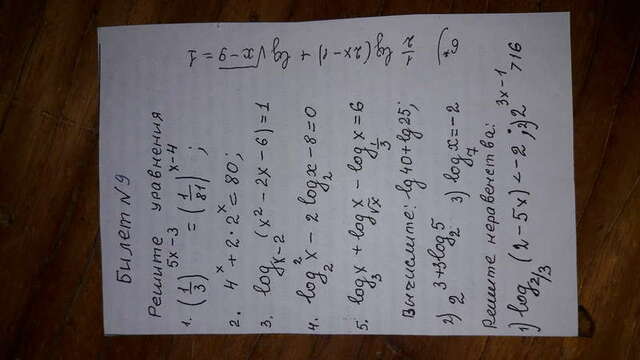 Билет №9
Решите уравнения
1. (1/3)^(5x-3) = (1/81)^(x-4);
2. 4^x + 2·2^x = 80;
3. log_(x-2) (x² - 2x - 6) = 1
4. log₂² x - 2 log₂ x - 8 = 0
5. log_3 x + log_√x x - log_(1/3) x = 6
Вычислите: lg 40 + lg 25;
2) 2^(3+3log₂5) 3) log_7 x = -2
Решите неравенства:
1) log_(2/3) (2 - 5x) < -2; 2) 2^(3x-1) > 16
6*) 1/2 lg(2x-1) + lg √(x-9) = 1